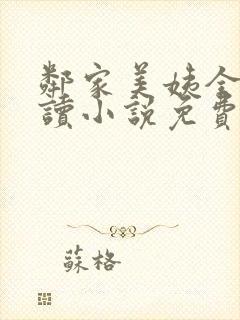 鄰家美姨全
讀小說免費
蘇格